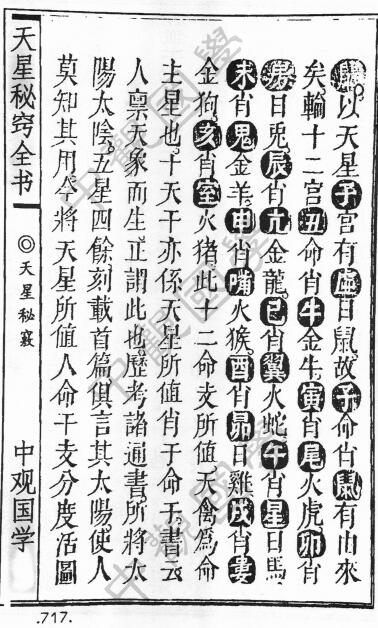 以天星子宮有虛日鼠故子命肖鼠有由來
矣輪十二宮丑命肖牛金牛寅肖尾火虎卯肖
房日兎辰肖亢金龍巳肖翼火蛇午肖星日馬
未肖鬼金羊申肖嘴火猴酉肖昴日雞戌肖婁
金狗亥肖室火猪此十二命支所值天禽為命
主星也十天干亦係天星所值肖于命于書云
人禀天象而生正謂此也歷考諸通書所將太
陽太陰五星四餘刻載首篇俱言其太陽使人
莫知其用今將天星所值人命干支分度活圖
天星秘窍全书
◎天星秘竅
中观国学
.717.
中觀國學
中觀國學